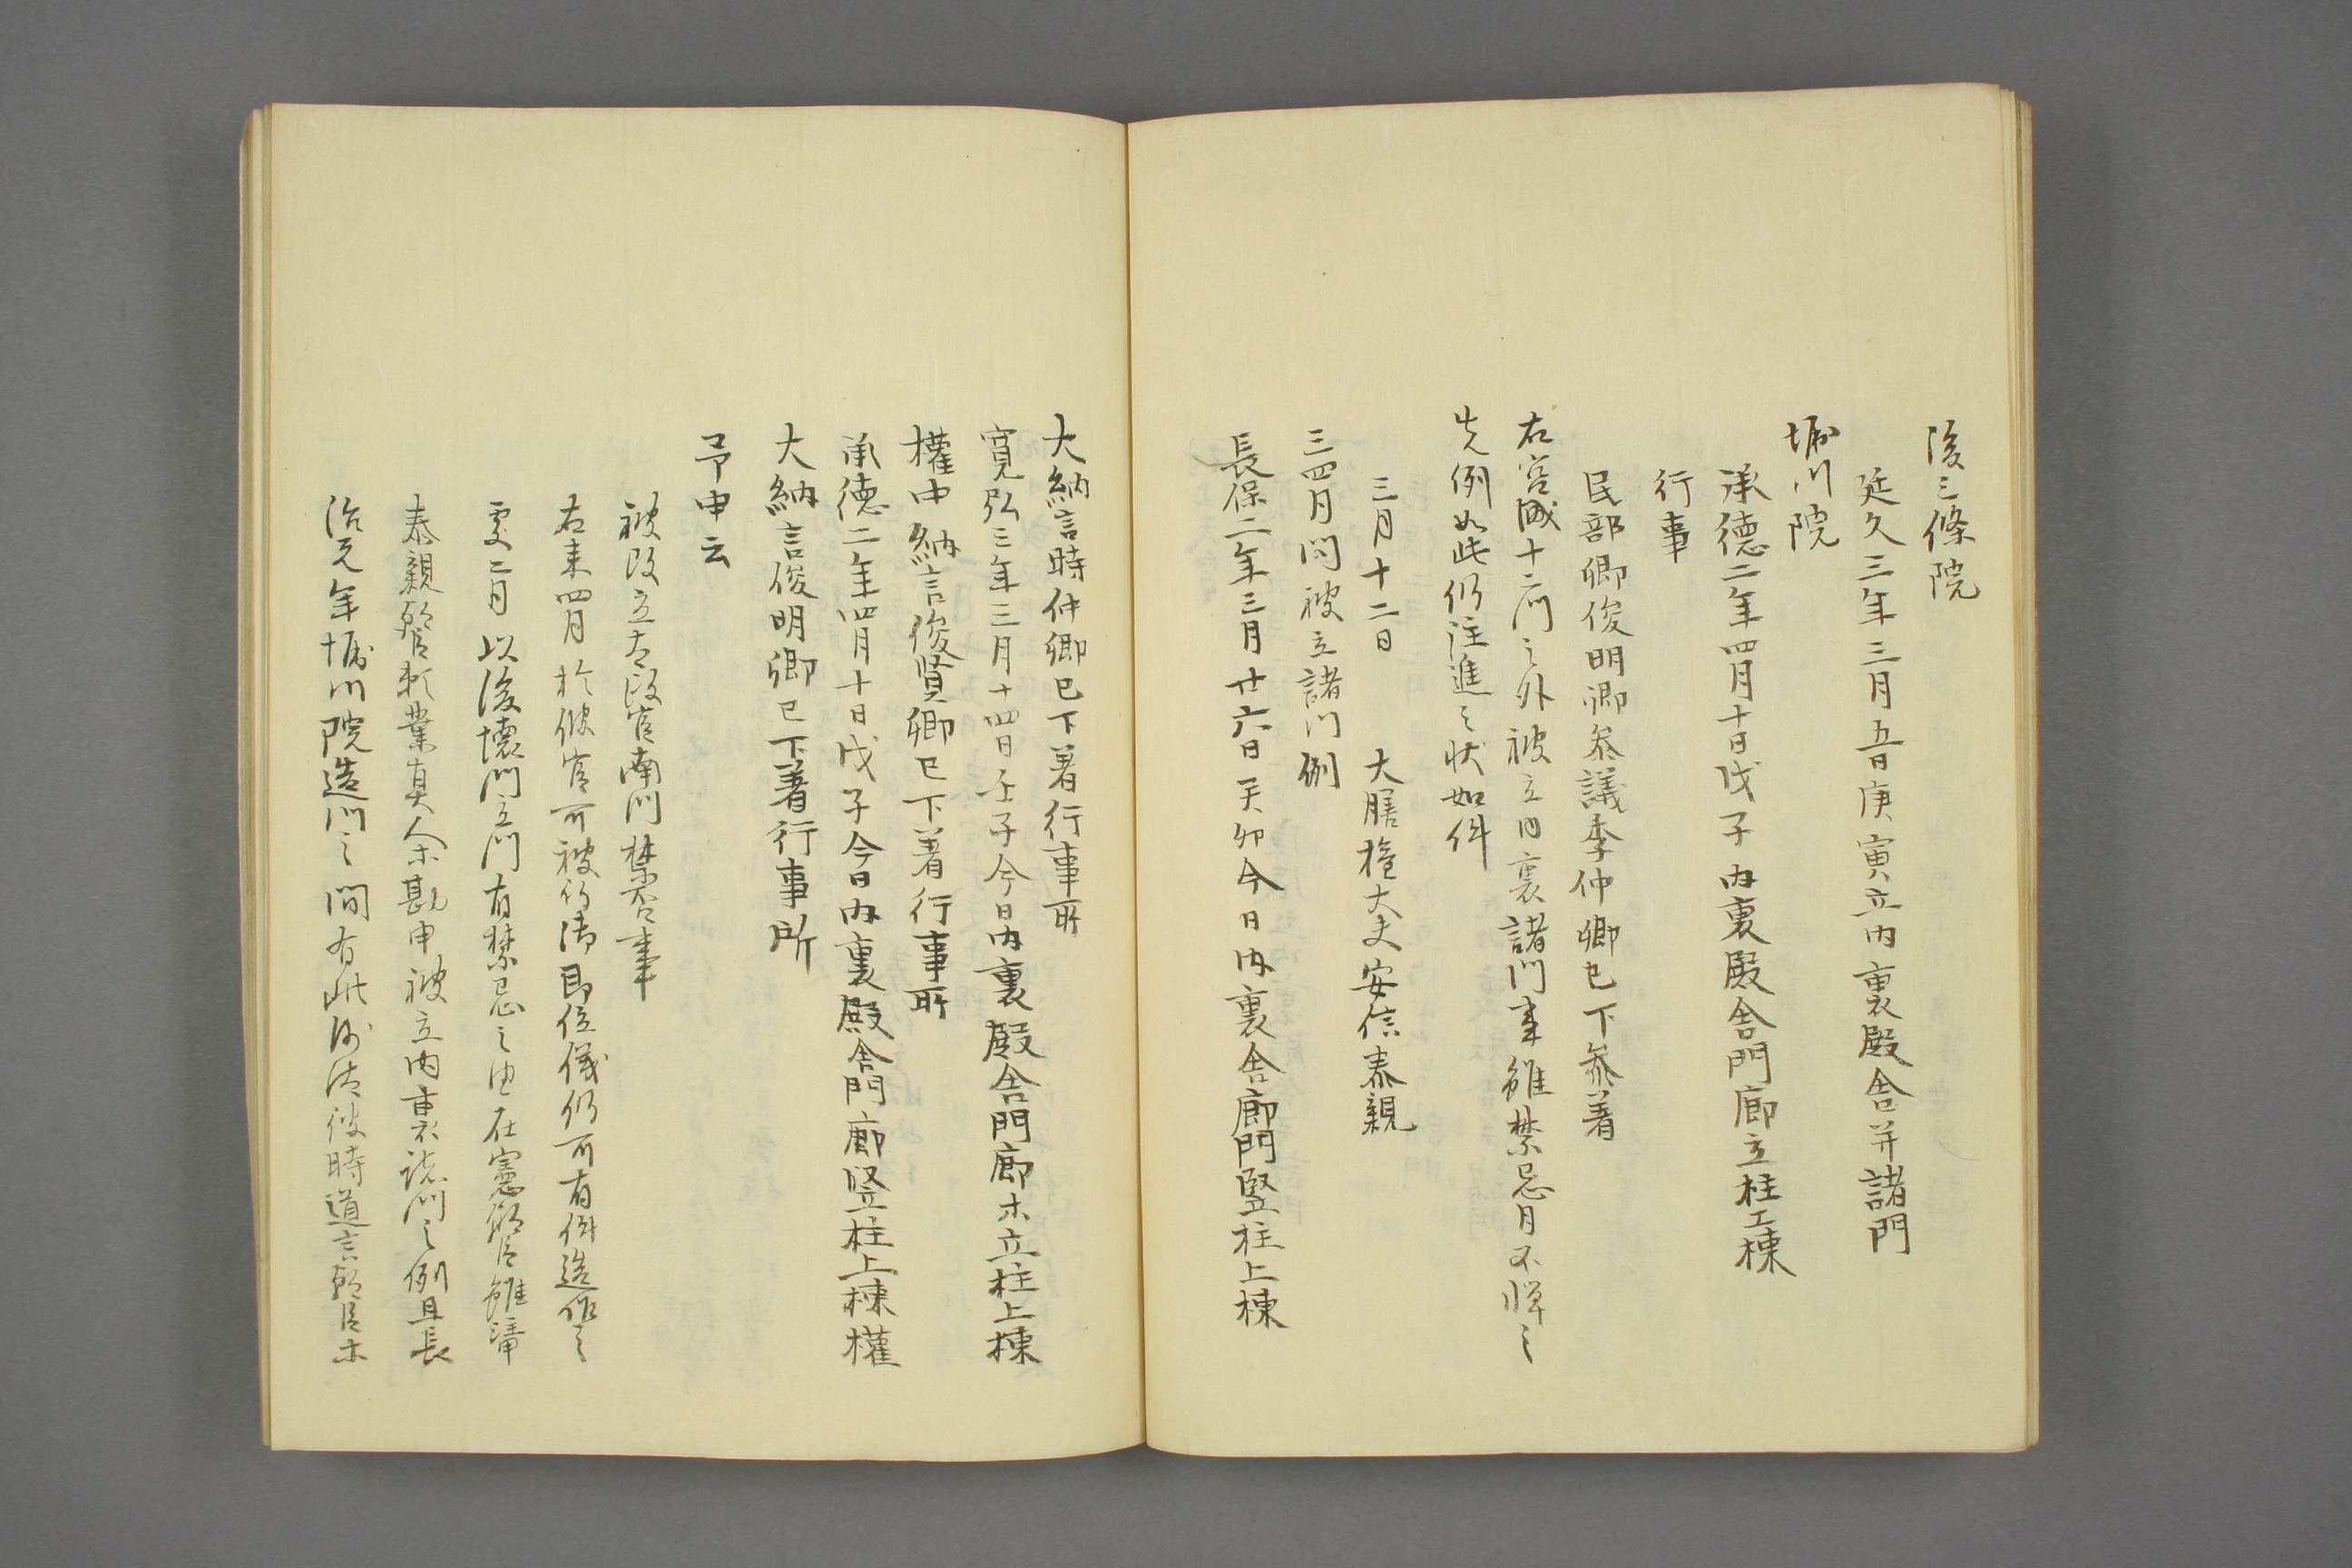 後三條院
延久三年三月五日庚寅立内裏殿舎并諸門
堀川院
承徳二年四月十日戊子内裏殿舎門廊立柱上棟
行事
民部卿俊明卿参議季仲卿已下参着
右宮城十二門之外被立内裏諸門事雖禁忌月不憚之
先例如此仍注進之状如件
三月十二日　大膳権大夫安倍泰親
三四月間被立諸門例
長保二年三月廿六日癸卯今日内裏舎廊門竪柱上棟
大納言時仲卿已下着行事所
寛弘三年三月十四日壬子今日内裏殿舎門廊木立柱上棟
權中納言俊賢卿已下着行事所
承徳二年四月十日戊子今日内裏殿舎門廊竪柱上棟權
大納言俊明卿已下著行事所
予申云
被改立太政官南門禁否事
右来四月於彼官可被行御即位儀仍可有件造作之
處二月以後壊門立門有禁忌之由在憲朝臣雖諱
泰親朝臣頼業真人余勘申被立内裏諸門之例且長
治元年堀川院造門之間有此沙汰彼時道言朝臣木